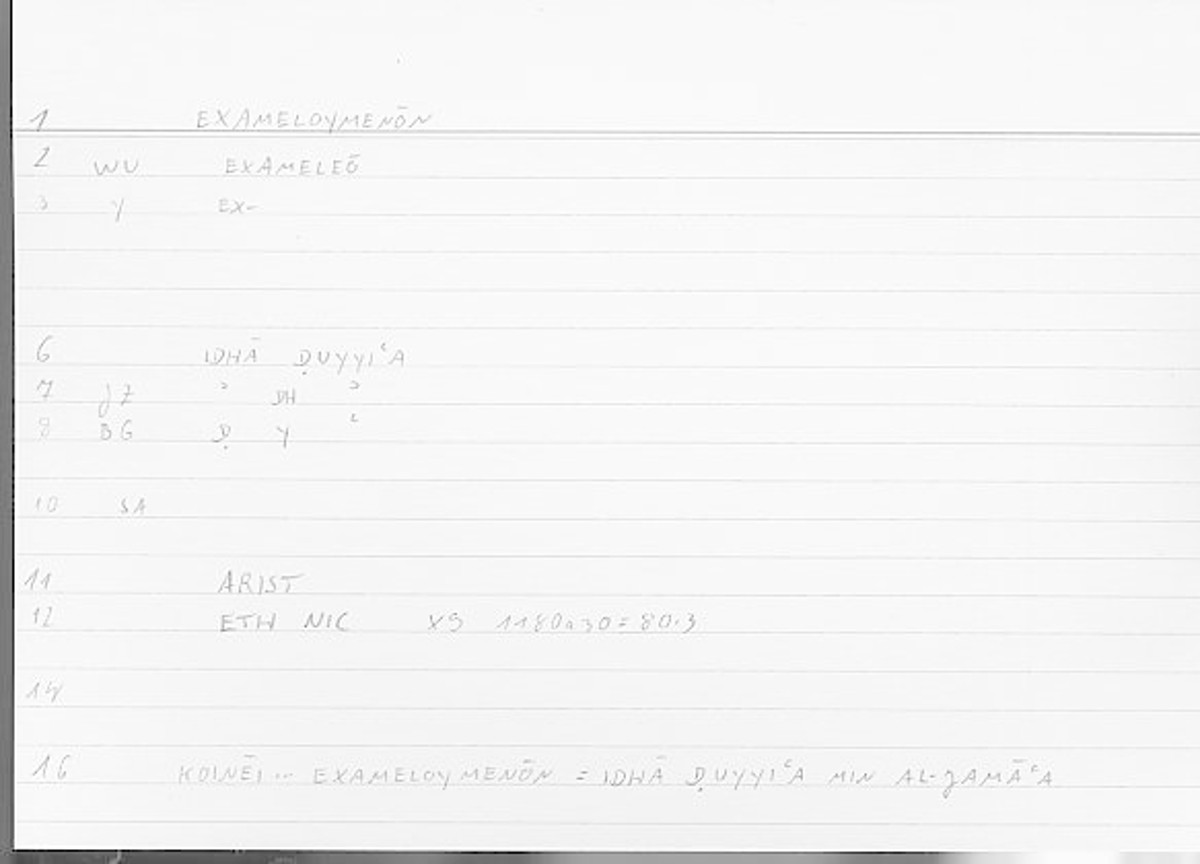 1 EXAMELOYMENŌN
2 WU EXAMELEŌ
3 Y EX-
6 IDHĀ ḌUYYIʿA
7 JZ ʾ DH ʾ
8 BG Ḍ Y ʿ
10 SA
11 ARIST
12 ETH NIC X9 1180a30=80.3
14
16 KOINĒI ... EXAMELOYMENŌN = IDHĀ ḌUYYIʿA MIN AL-JAMĀʿA